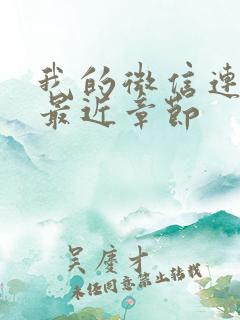 我的微信连
最近章节
吴庆才
未经同意禁止转载